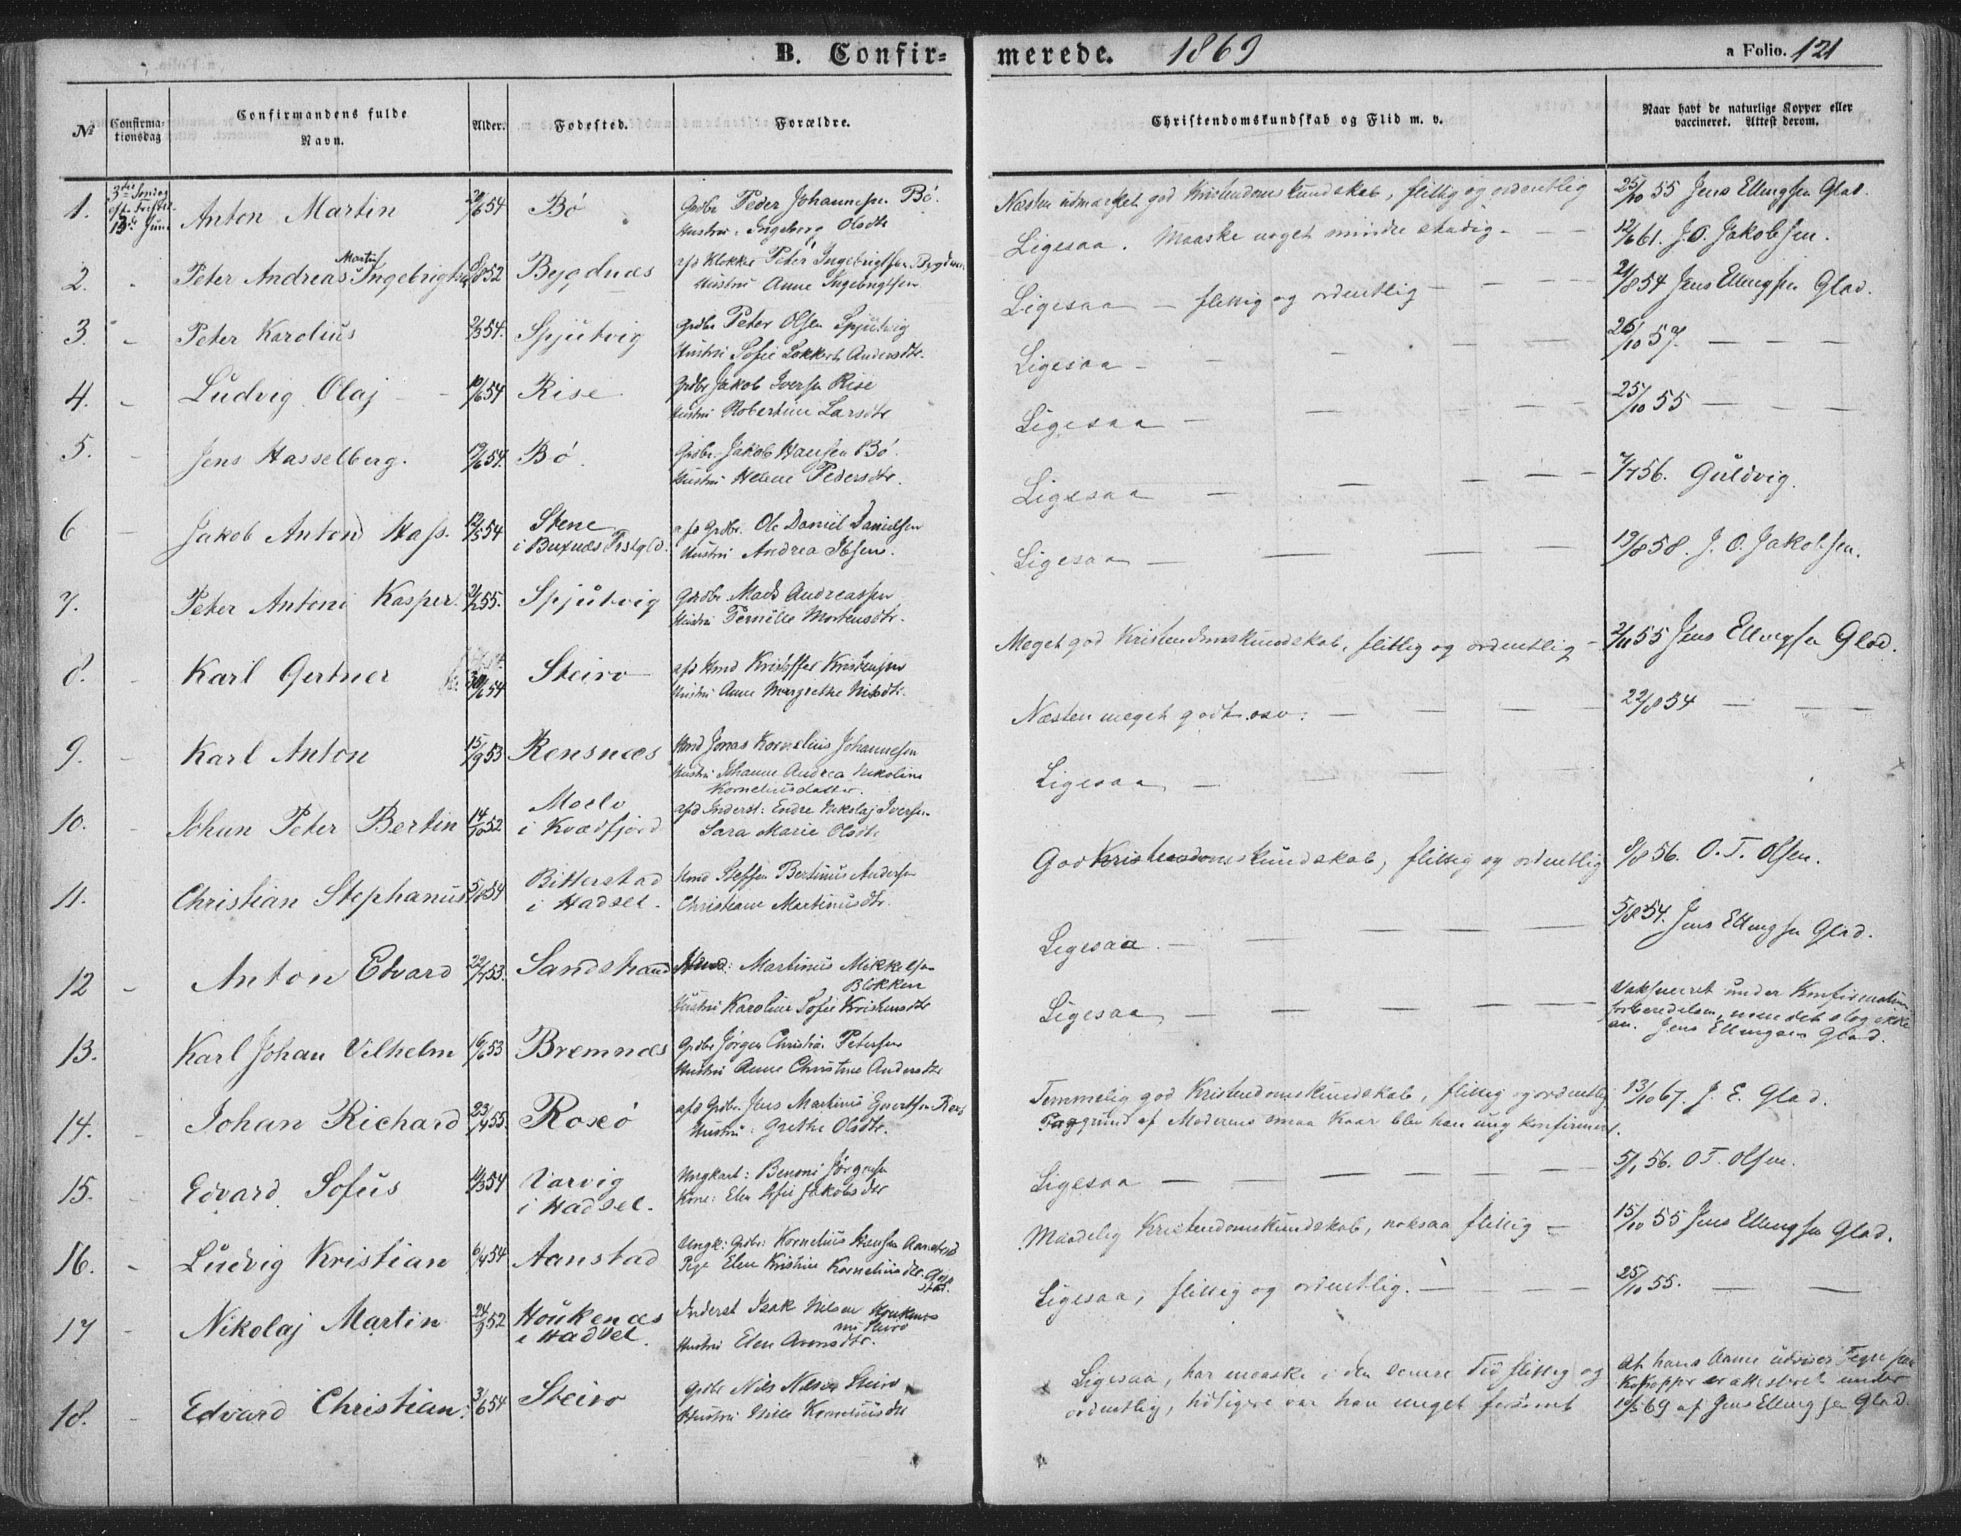 B. Confir- merede. 1869 a Folio. 121
№ Confirma-tionsdag Confirmandens fulde Navn. Alder. Fødested. Forældre. Christendomskundskab og Flid m. v. Naar havt de naturlige Kopper eller vaccineret. Attest derom.
1. 3die Søndag eft. Trefold. 13de Juni Anton Martin 54 Bö Grdbr Peder Johannesen Bö. Hustru: Ingeborg Olsdtr Næsten udmærket god Kristendomskundskab, flittig og ordentlig 25/10 55 Jens Ellingsen Glad.
2. Peter Andreas Martin Ingebrigtsen 52 Bygdnæs afd Klokker Peter Ingebrigtsen Bygdnæs Hustru Anne Ingebrigtsen Ligesaa. Maaske noget mindre stadig 12/6 61. J. O. Jakobsen.
3. Peter Karolius 54. Spjutvig Grdbr Peter Olsen Spjutvig Hustru Sofie Andersdtr. Ligesaa - flittig og ordentlig 21/8 54 Jens Ellingsen Glad.
4. Ludvig Olaj 10/6 54 Rise Grdbr Jakob Iversen Rise Hustru Robertine Larsdtr Ligesaa 26/10 57.
5. Jens Hasselberg. 54. Bö. Grdbr. Jakob Hansen Bö. Hustru Helene Pedersdtr. Ligesaa 25/10 55
6 Jakob Anton Hass. 54 Stene i Buxnæs Prstgld. afd Grdbr. Ole Daniel Danielsen Hustru Andrea Ibsen. Ligesaa 7/7 56. Guldvig.
7. Peter Antoni Kasper. 55. Spjutvig Grdbr Mads Andreassen Hustru Pernille Mortensdtr. Ligesaa 19/8 58. J. O. Jakobsen.
8. Karl Gertner 54 Steiro afd Hmd Kristoffer Kristensen Hustru Anne Margrethe Nilsdtr. Meget god Kristendomskundskab, flittig og ordentlig 2/11 55 Jens Ellingsen Glad.
9. Karl Anton 15/9 53 Rensnæs Hmd Jonas Kornelius Johannesen Hustru Johanne Andrea Nikoline Korneliusdatter. Næsten meget godt osv. 22/8 54
10. Johan Peter Bertin 14/10 52 Moelv i Kvædfjord afd Inderst: Endre Nikolaj Iversen Sara Marie Olsdtr Ligesaa
11. Christian Stephanus 54 Bitterstad i Hadsel. Hmd Steffen Bertinus Andersen Christiane Martinusdtr. God Kristendomskundskab, flittig og ordentlig 8/8 56. O. T. Olsen.
12 Anton Edvard 53. Sandstrand Hmd: Martinus Mikkelsen Blokken Hustru Karoline Sofie Kristensdtr Ligesaa. 5/8 54. Jens Ellingsen Glad.
13. Karl Johan Vilhelm 53 Bremnæs Grdbr Jørgen Christian Petersen Hustru Anne Christine Andersdtr Ligesaa Vaksineret under Konfirmations forberedelsen, men det slog ikke an. Jens Ellingsen Glad.
14. Johan Richard 23/4 55. Roxö afd Grdbr. Jens Martinus Evertsen Hustru: Grethe Olsdtr. Temmelig god Kristendomskundskab, flittig og ordentlig Paa grund af Moderens smaa Kaar blev han ung konfirmert. 13/10 67. J. E. Glad.
15. Edvard Sofus 54 Varvig i Hadsel. Ungkarl: Benoni Jørgensen Kone: Elen Sofie Jakobsdtr Ligesaa 5/1 56. O T. Olsen.
16. Ludvig Kristian 6/4 54 Aanstad Ungk: Grdbr: Kornelius Hansen Aanstad Pige Elen Kristine Korneliusdtr. Maadelig Kristendomskundskab, noksaa flittig 15/10 55 Jens Ellingsen Glad.
17 Nikolaj Martin 24/9 52 Haukenæs i Hadsel. Inderst Isak Nilsen Haukenæs nu Steiro Hustru Elen Arensdtr. Ligesaa, flittig og ordentlig. 25/10 55.
18. Edvard Christian. 3/6 54 Steiro Grdbr Nils Nilsen Steiro Hustru Korneliusdtr Ligesaa, har maaske i den senere Tid flittig og ordentlig, tidligere var han meget forsømt At hans Arme udviser Tegn paa Kokopper er attesteret under 10/5 69 af Jens Ellingsen Glad.